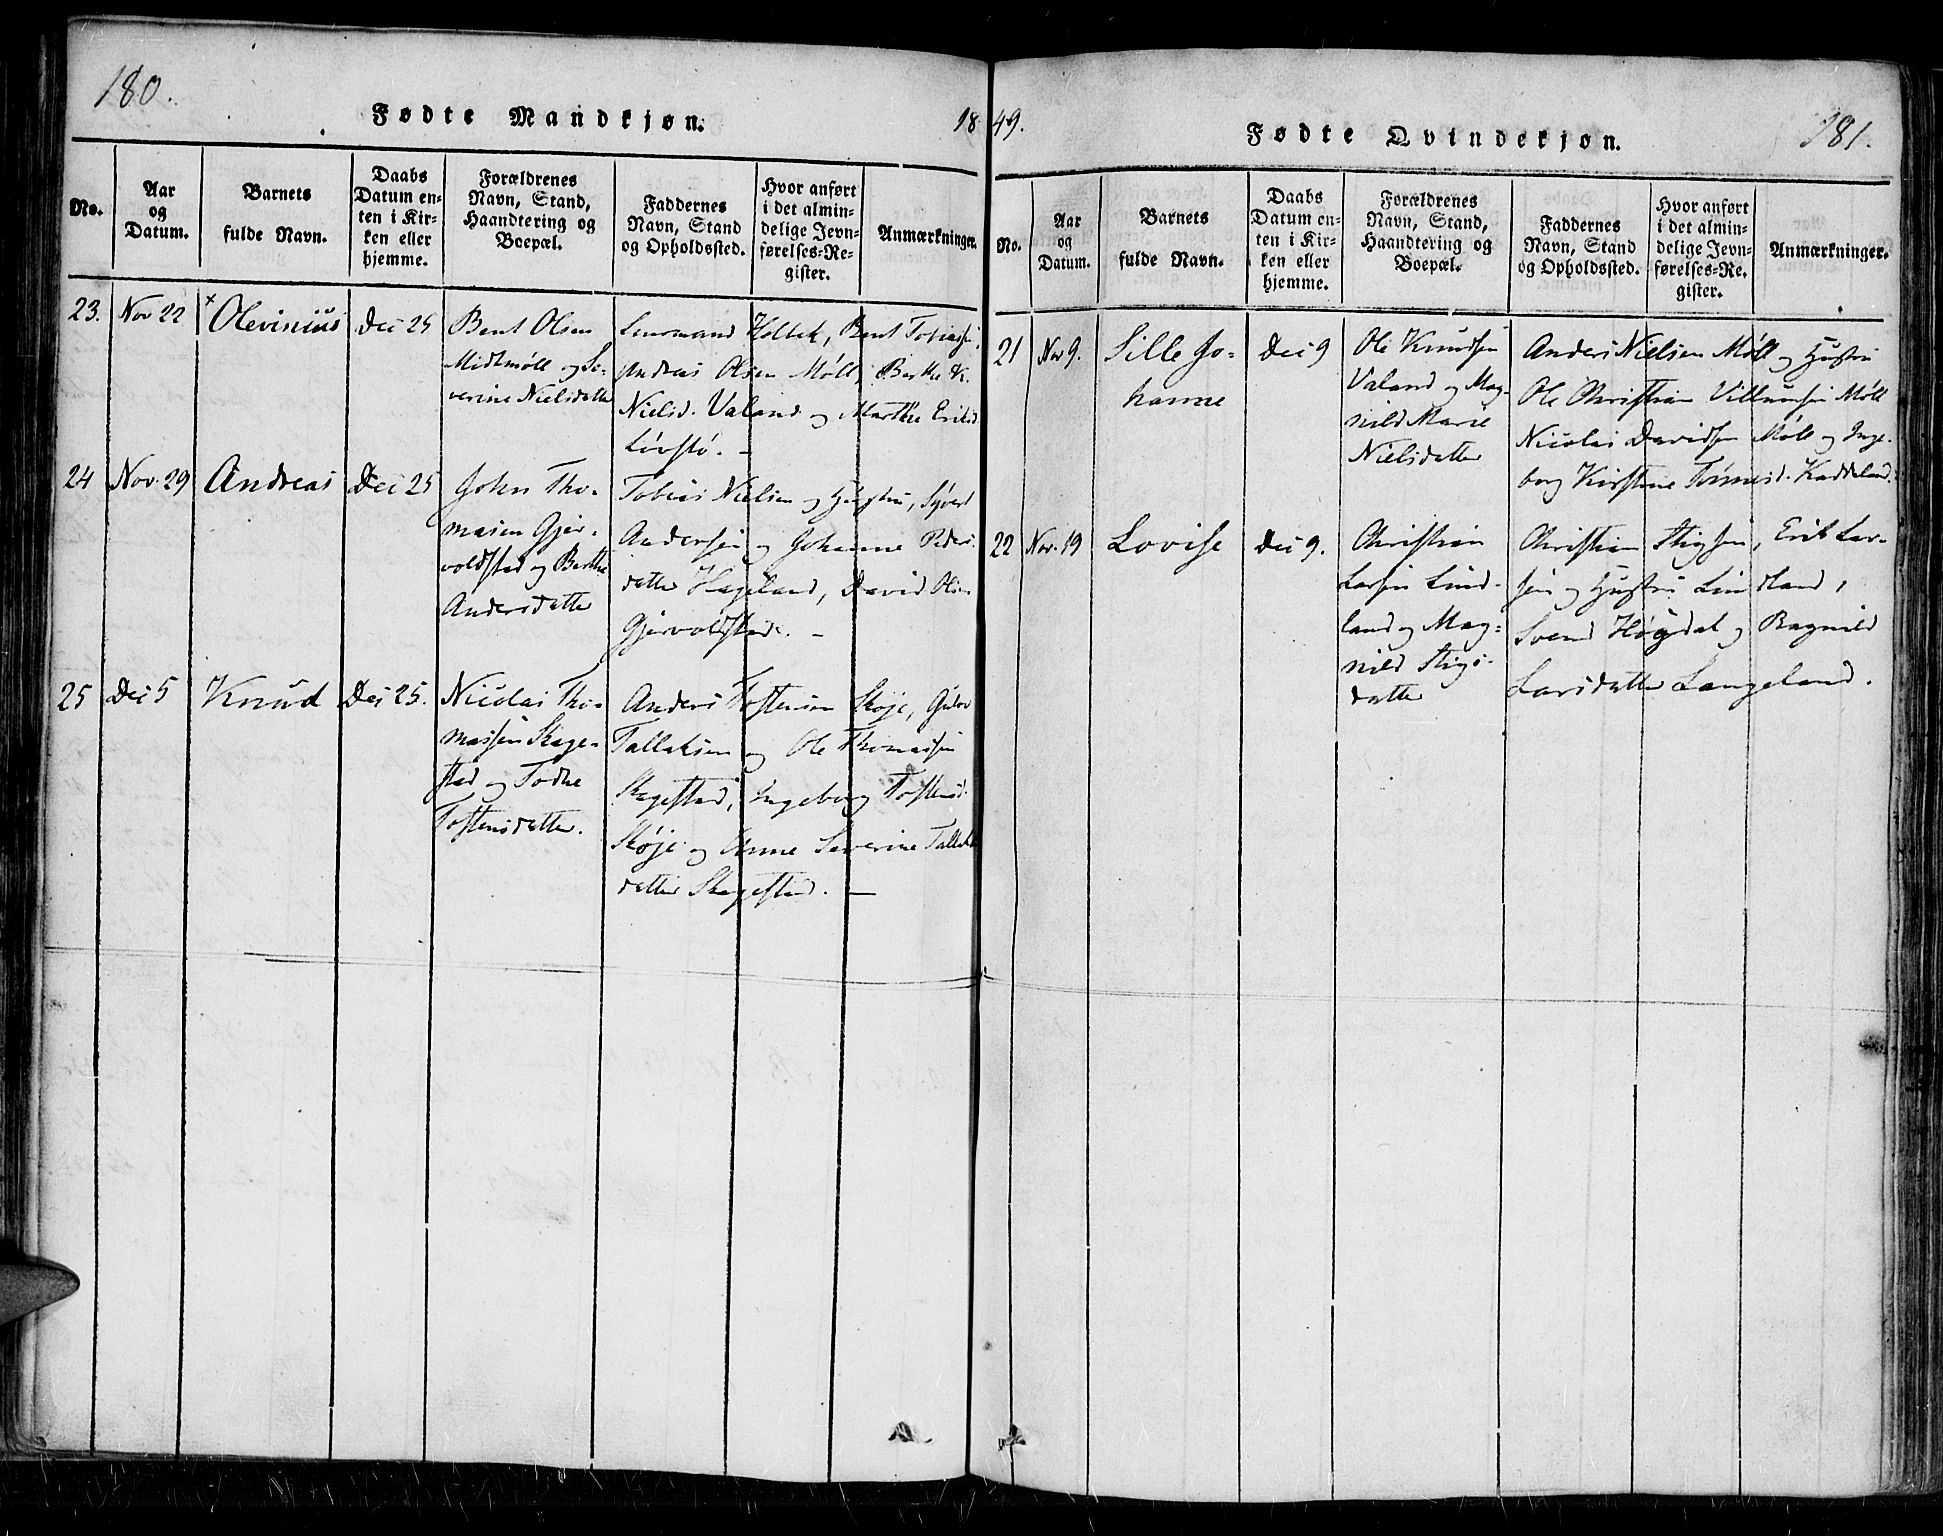 180.
Fødte Mandkjøn.
18
No.
Aar
og
Datum.
Barnets
fulde Navn.
Daabs
Datum en-
ten i Kir-
ken eller
hjemme.
Forældrenes
Navn, Stand,
Haandtering og
Boepæl.
Faddernes
Navn, Stand
og Opholdssted.
Hvor anført
i det almin-
delige Jevn-
førelses-Re-
gister.
Anmærkninger.
23. Nov 22 × Olevinius Dec 25
Bent Olsen
Midtmøll og Se-
verine Nielsdatter
Lensmand Holtek, Bent Tobiassen,
Andreas Olsen Møll, Berthe K.
Nielsd. Valand og Marthe Eriksd
Løvstø. -
24 Nov. 29 Andreas Dec 25
John Tho-
masen Gjer-
voldstad og Berthe
Andersdatter
Tobias Nielsen og Hustru, Syvert
Andersen og Johanne Peders-
datter Hageland, David Olsen
Gjervoldstad. -
25 Dec 5 Knud Dec 25.
Nicolai Tho-
massen Skage-
stad og Todne
Tostensdatter.
Anders Tostensen Skøje, Gulov
Tallaksen og Ole Thomassen
Skagestad, Ingeborg Tostensd.
Skøje og Anne Severine Tallaks
datter Skagestad. -
49.
Fødte Qvindekjøn.
181.
No.
Aar
og
Datum.
Barnets
fulde Navn.
Daabs
Datum en-
ten i Kir-
ken eller
hjemme.
Forældrenes
Navn, Stand,
Haandtering og
Boepæl.
Faddernes
Navn, Stand
og Opholdssted.
Hvor anført
i det almin-
delige Jevn-
førelses-Re-
gister.
Anmærkninger.
21 Nov 9. Sille Jo-
hanne
Dec 9
Ole Knudsen
Valand og Mag-
nild Marie
Nielsdatter
Anders Nielsen Møll og Hustru
Ole Christian Villumsen Møll
Nicolai Davidsen Møll og Inge-
borg Kirstine Tønnesd. Kaddeland.
22 Nov. 19 Lovise Dec 9.
Christian
Larsen Lind-
land og Mag-
nild Stigs-
datter
Christian Stigsen, Erik Lar-
sen og Hustru Lindland,
Svend Høgdal og Ragnild
Larsdatter Langeland.